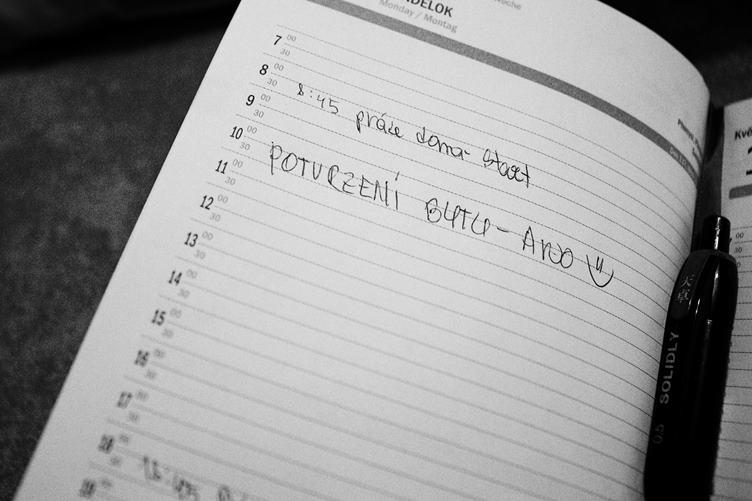 Monday / Montag
7 00
30
8 00
30
8:45 práce doma - Start
9 00
30
10 00
30
POTVRZENÍ BYTU - ANO
11 00
30
12 00
30
13 00
30
14 00
30
15 00
30
16 00
30
17 00
30
18 00
30
19
天卓
SOLIDLY
0.5